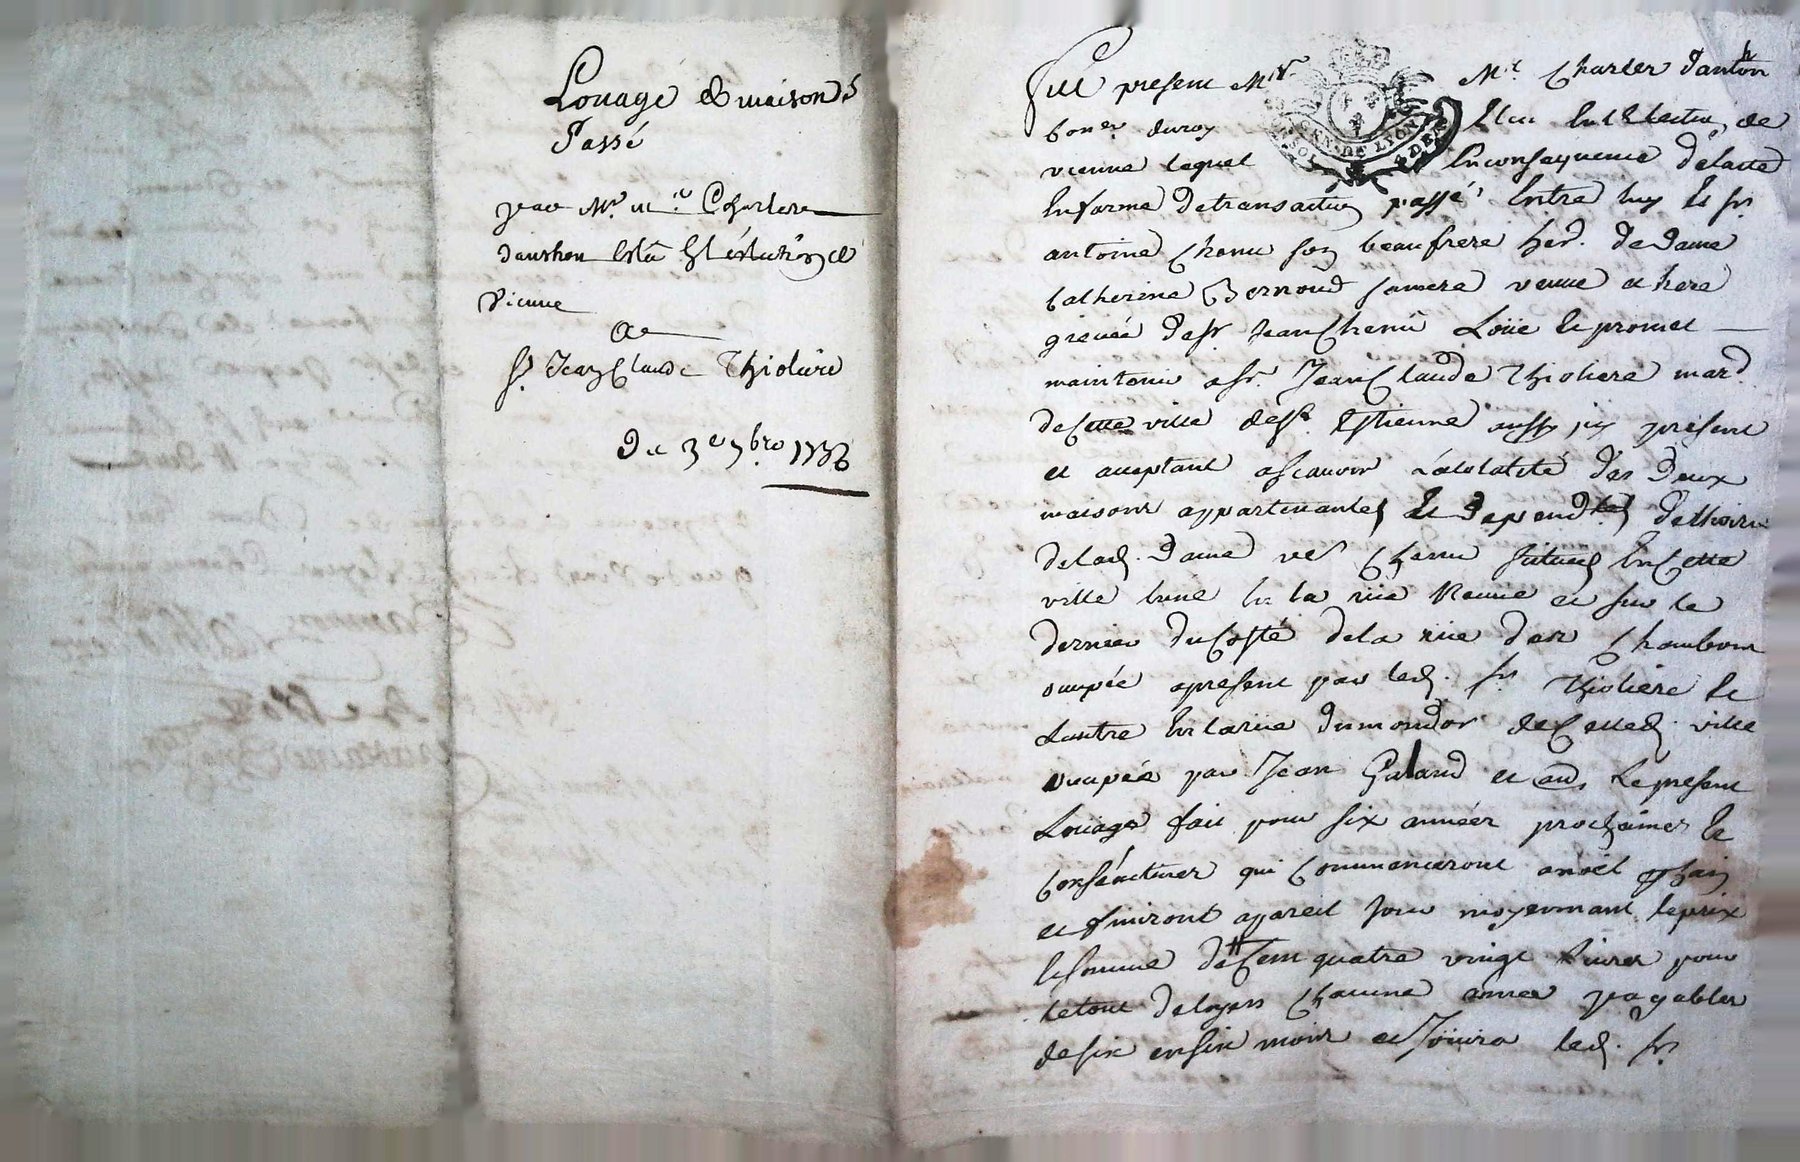 Louage de maisons
Passé
par Mr. Me. Charles
danthon eslu en l'eslection de
Vienne
a
sr. Jean Claude Thiolière
Du 3e 7bre 1736
Fut present Mr. Me. Charles danthon
coner. du roy Elu en l'Election de
vienne lequel En consequence de lacte
En forme de transaction passé Entre luy Et sr.
antoine Chenu son beaufrere her. de Dame
Catherine Bernoud sa mere veuve et here
grevée de sr. Jean Chenu Loüe Et promet
maintenir a sr. Jean Claude Thioliere mard.
de Cette ville de st. Estienne aussy icy présent
et acceptant ascavoir La totalité des Deux
maisons appartenantes Et Dependtes de lhoirie
de lad. Dame ve. Chenu situées En Cette
ville l'une En la rüe Neuve et sur le
dernier du Costé de la rüe des Chambons
occupée apresent par led. sr. Thioliere Et
Lautre En la rüe du mondor de Cetted. ville
occupée par Jean Galand et Le present
Loüage fait pour six années prochaines Et
Consécutives qui Commanceront a noël pchain
et finiront a pareil jour moyennant le prix
Et somme de Cent quatre vingt Livres pour
le tout de loyers Chacune année payables
de six en six mois et Joüira led. sr.
GEN. DE LYON